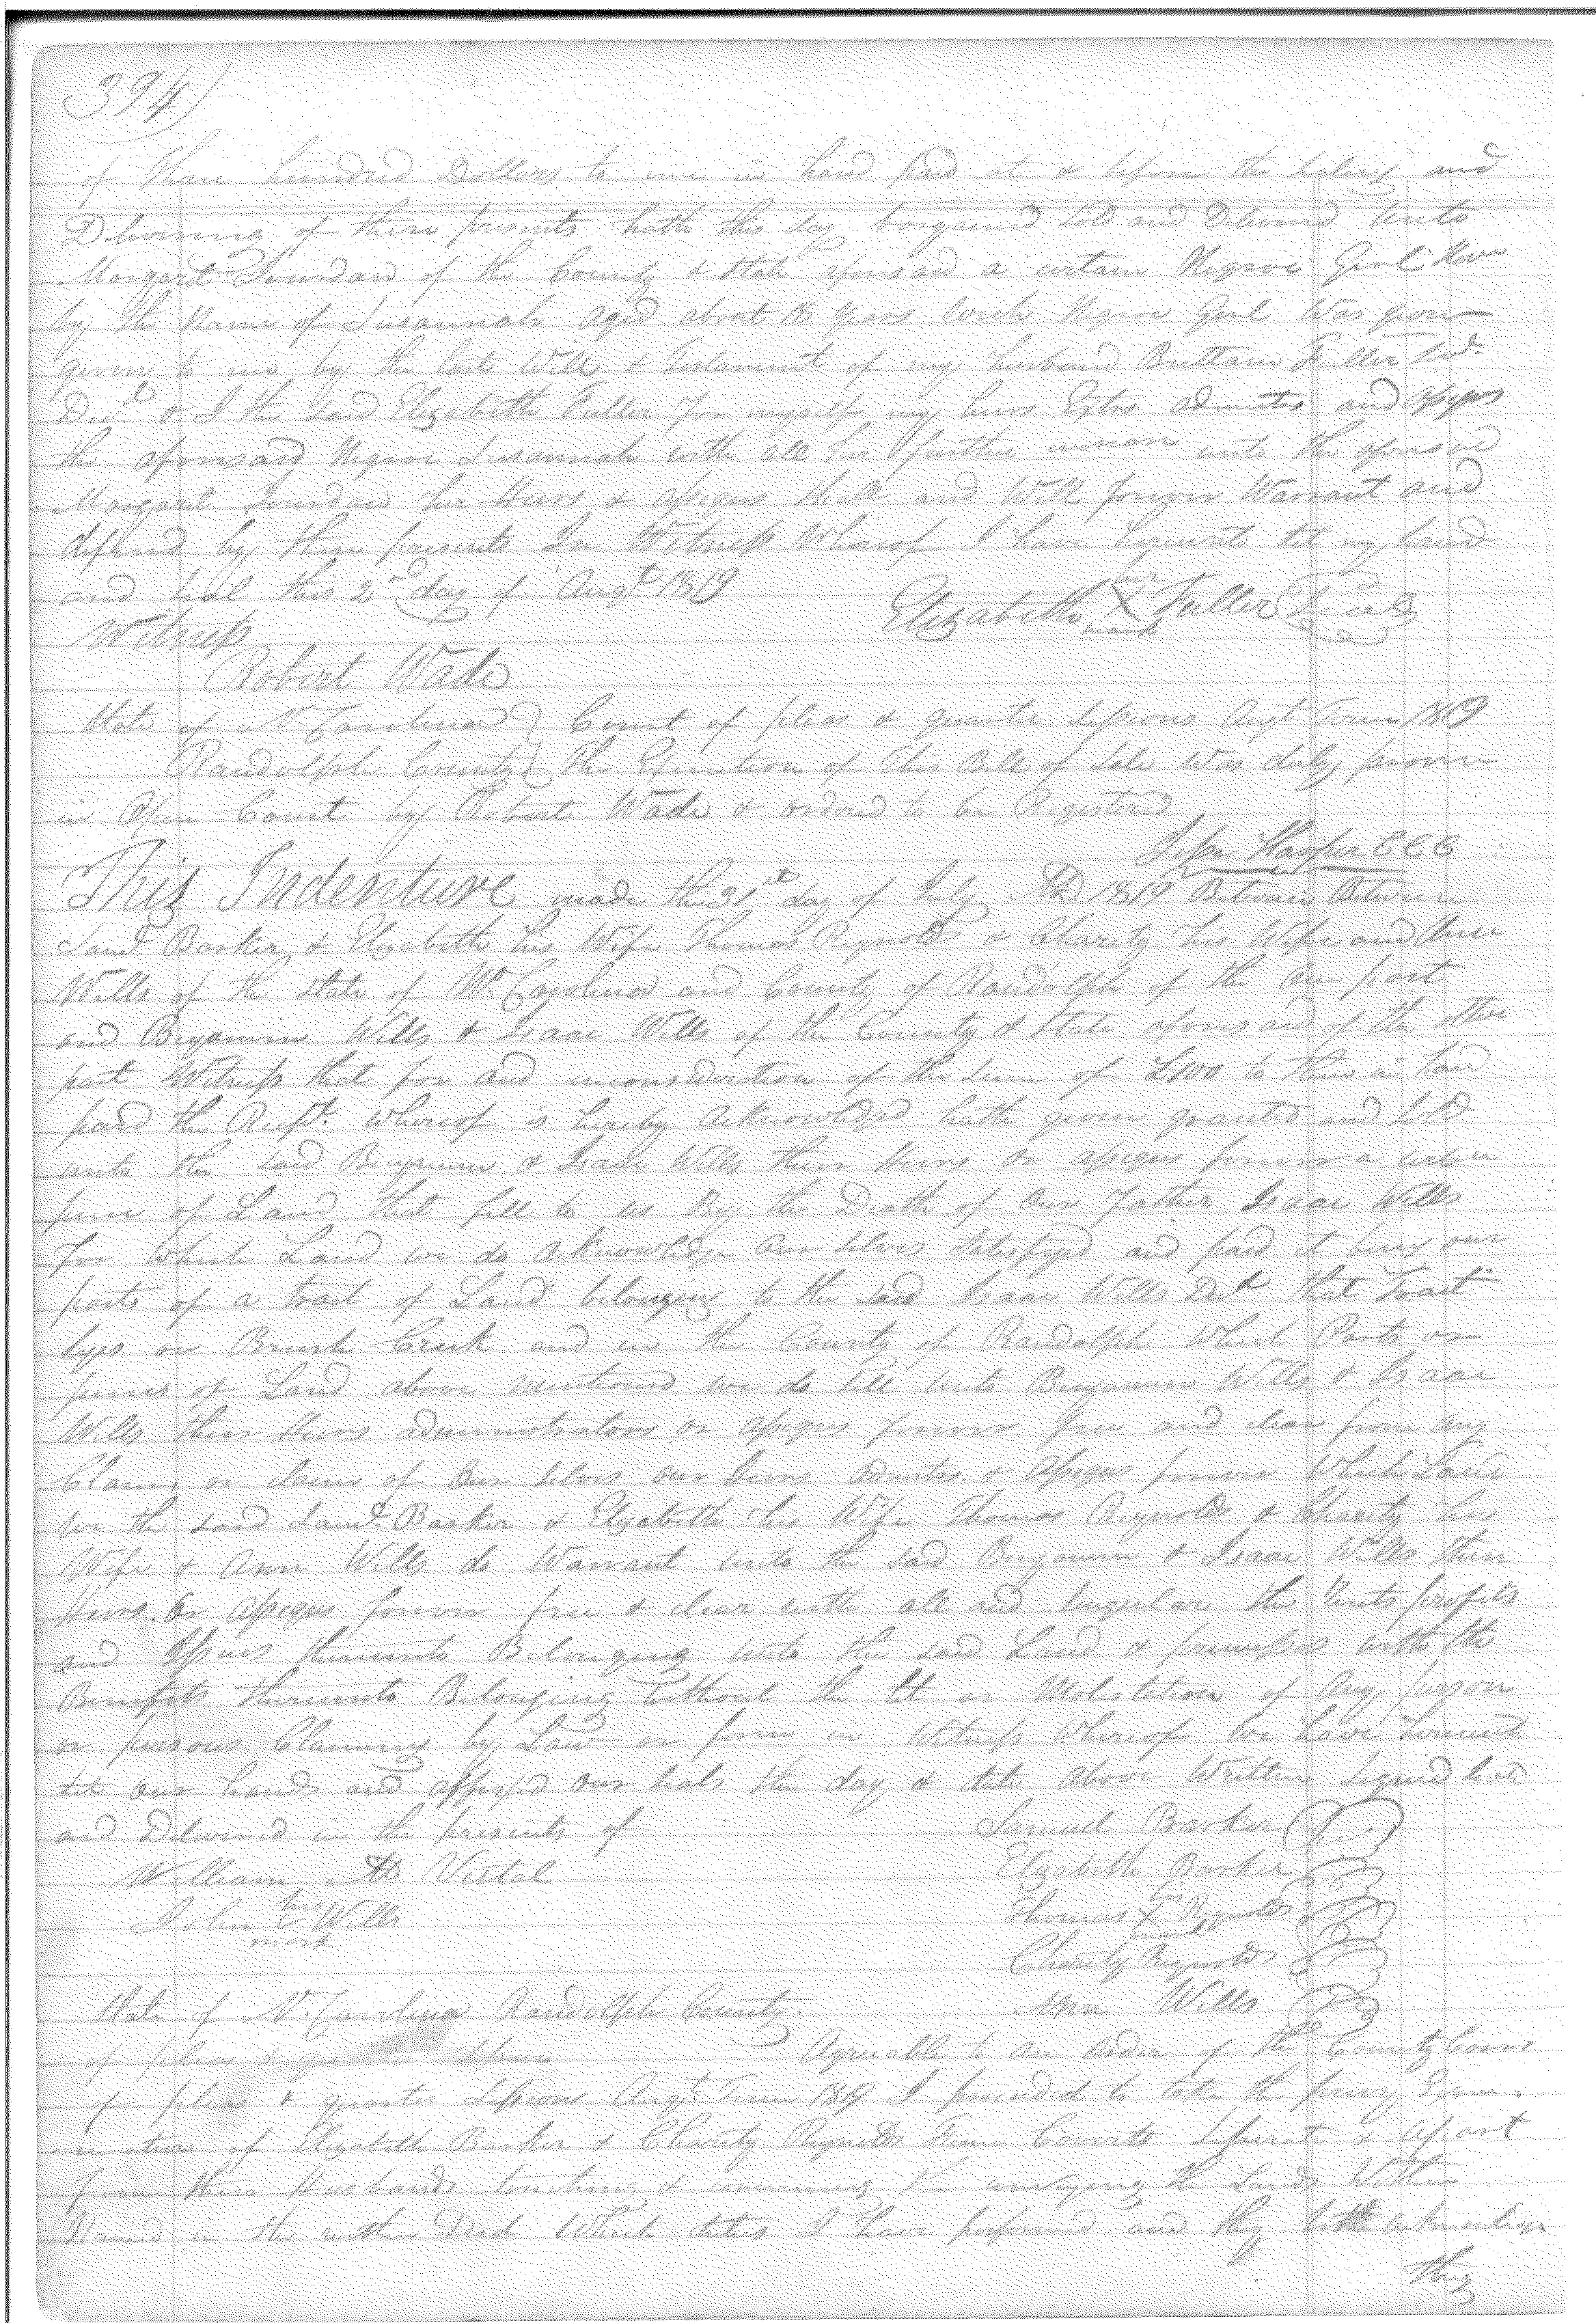 394)
of three hundred Dollars to me in hand paid at & upon the sealing and
Delivering of these presents hath this day bargained sold and Delivered unto
Margaret of the County & State aforesaid a certain Negroe Girl
by the Name of Susannah Aged about 18 years which Negroe Girl was given
given to me by the last Will & Testament of my husband Brittain Fuller
Decd & I the said Elizabeth Fuller for myself my heirs Extrs admntrs and assigns
the aforesaid Negroe Susannah with all her further increase unto the aforesaid
Margaret her Heirs & assigns shall and Will forever Warrant and
defend by these presents In Witness Whereof I have hereunto set my hand
and seal this 2nd day of Augt 1819
Elizabeth her X mark Fuller Seal
Witness
Robert Wade
State of N Carolina } Court of pleas & quarter sessions Augt Term 1819
Randolph County } The Execution of this Bill of Sale was duly proven
in Open Court by Robert Wade & ordered to be Registered
Jesse Harper C C C
This Indenture made the 31st day of July AD 1819 Between Between
Saml Barker & Elizabeth his Wife Thomas Reynolds & Charity his Wife and Ann
Wills of the state of No Carolina and County of Randolph of the one part
and Benjamin Wills & Isaac Wills of the County & state aforesaid of the other
part Witness that for and inconsideration of the sum of £100 to them in hand
paid the Recpt. whereof is hereby Acknowledged hath given granted and sold
unto the said Benjamin & Isaac Wills their Heirs or assigns forever a certain
peice of Land that fell to us By the Death of Our Father Isaac Wills
For which Land we do acknowledge our selves satisfyed and paid it being our
parts of a tract of Land belonging to the said Isaac Wills Decd that Tract
lyes on Brush Creek and in the County of Randolph which Parts or
peices of Land above mentioned we do sell unto Benjamin Wills & Isaac
Wills their Heirs administrators or assigns forever free and clear from any
Claim or claims of our selves our heirs admtrs & assigns forever Which Land
we the said Saml Barker & Elizabeth his Wife Thomas Reynolds & Charity his
Wife & Ann Wills do Warrant unto the said Benjamin & Isaac Wills their
Heirs Or assigns forever free & clear with all and singular the rents profits
and thereunto Belonging unto the said Land & premisses with the
Benefits thereunto Belonging without the let or Molestation of Any person
or persons Claiming by Law or from in Witness Whereof we have hereunto
set our hands and affixed our seals the day & date above Written signed seald
and Delivered in the presents of
Samuel Barker
William Vestal
Elizabeth Barker
John his mark Wills
Thomas his X mark Reynolds
Charity Reynolds
State of N. Carolina Randolph County
Ann Wills
of pleas & Agreeable to an order of the County Court
of pleas & quarter sessions Augt Term 1819 I proceeded to take the privy Exam-
ination of Elizabeth Barker & Charity Reynolds Feme Coverts separate & apart
from their Husbands touching & concerning the conveying the Lands Within
Named in the within Deed Which duties I have performed and they both acknowledge
they